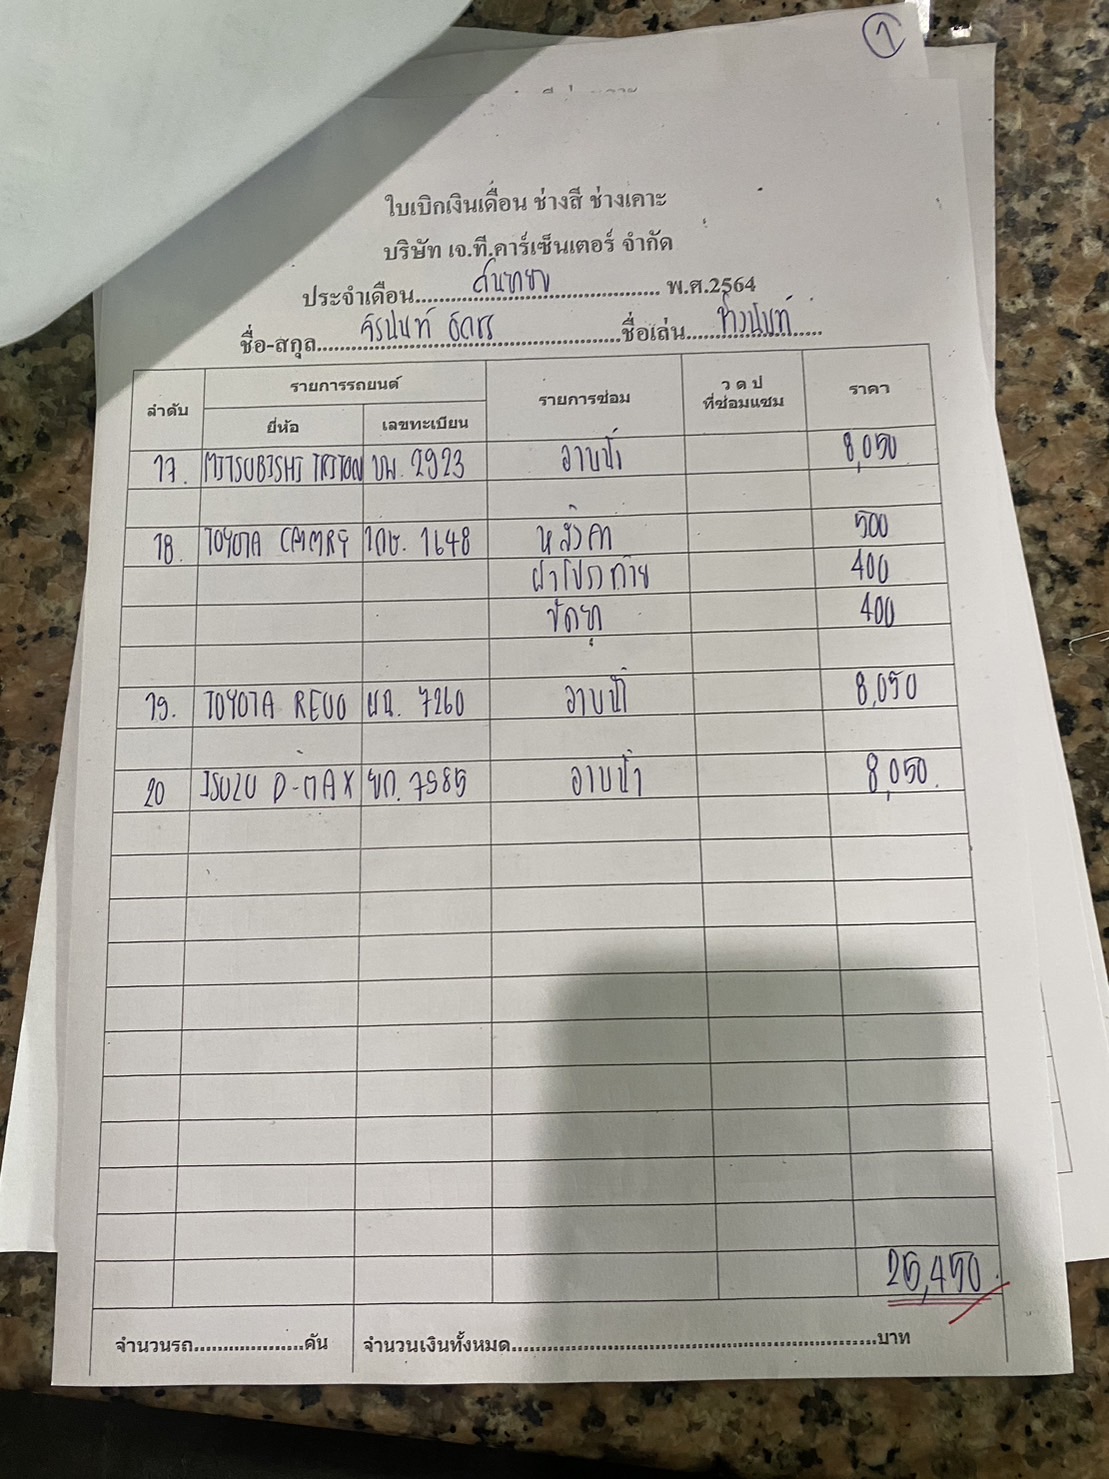 1
ใบเบิกเงินเดือน ช่างสี ช่างเคาะ
บริษัท เจ.ที.คาร์เซ็นเตอร์ จำกัด
ประจำเดือน กันยายน พ.ศ.2564
ชื่อ-สกุล จิรนันท์ ชื่อเล่น ช่างนันท์
ลำดับ รายการรถยนต์ รายการซ่อม ว ด ป ที่ซ่อมแซม ราคา
ยี่ห้อ เลขทะเบียน
17. MITSUBISHI TRITON บพ. 2923 อาบน้ำ 8,050
18. TOYOTA CAMRY 1กษ. 1648 หลังคา 500
ฝาโปรงท้าย 400
ขัดยา 400
19. TOYOTA REVO ผฉ. 7260 อาบน้ำ 8,050
20 ISUZU D-MAX ยก. 7985 อาบน้ำ 8,050.
25,450.
จำนวนรถ....................คัน จำนวนเงินทั้งหมด....................บาท